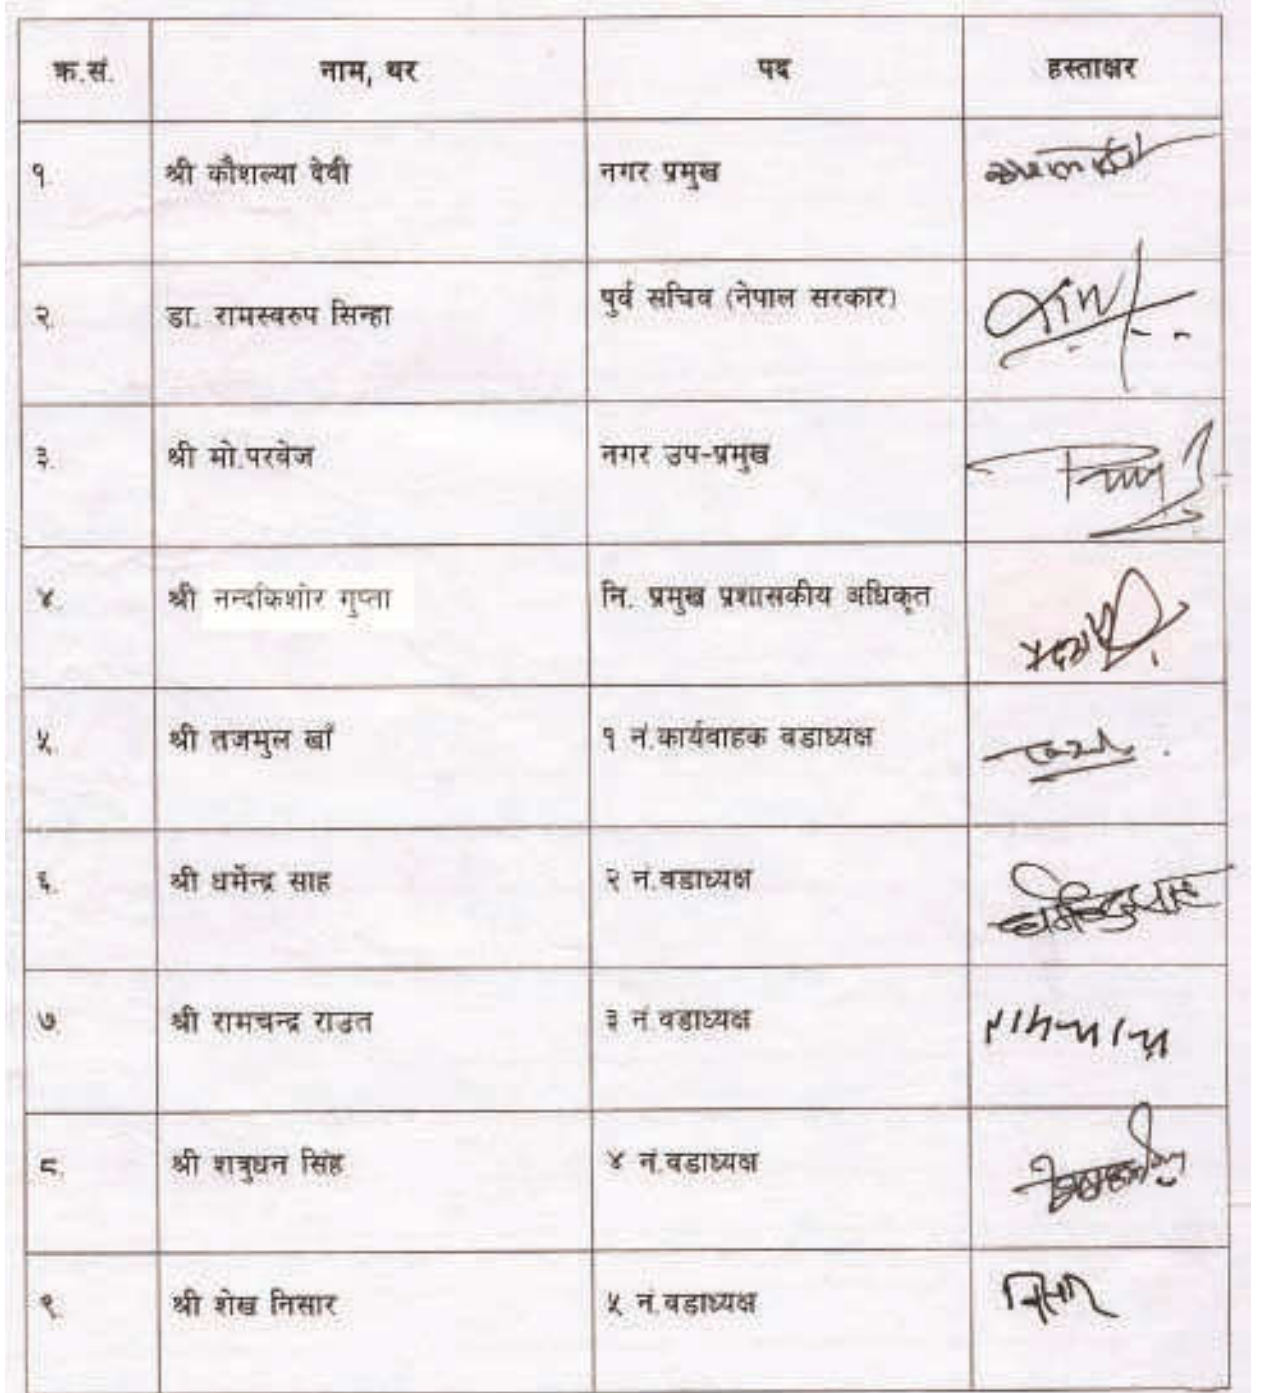 क्र.सं. नाम, थर पद हस्ताक्षर
१. श्री कौशल्या देवी नगर प्रमुख
२. डा. रामस्वरुप सिन्हा पुर्व सचिव (नेपाल सरकार)
३. श्री मो.परवेज नगर उप-प्रमुख
४. श्री नन्दकिशोर गुप्ता नि. प्रमुख प्रशासकीय अधिकृत
५. श्री तजमुल खाँ १ नं.कार्यवाहक वडाध्यक्ष
६. श्री धर्मेन्द्र साह २ नं.वडाध्यक्ष
७. श्री रामचन्द्र राउत ३ नं.वडाध्यक्ष
८. श्री शत्रुधन सिंह ४ नं.वडाध्यक्ष
९. श्री शेख निसार ५ नं.वडाध्यक्ष निसार